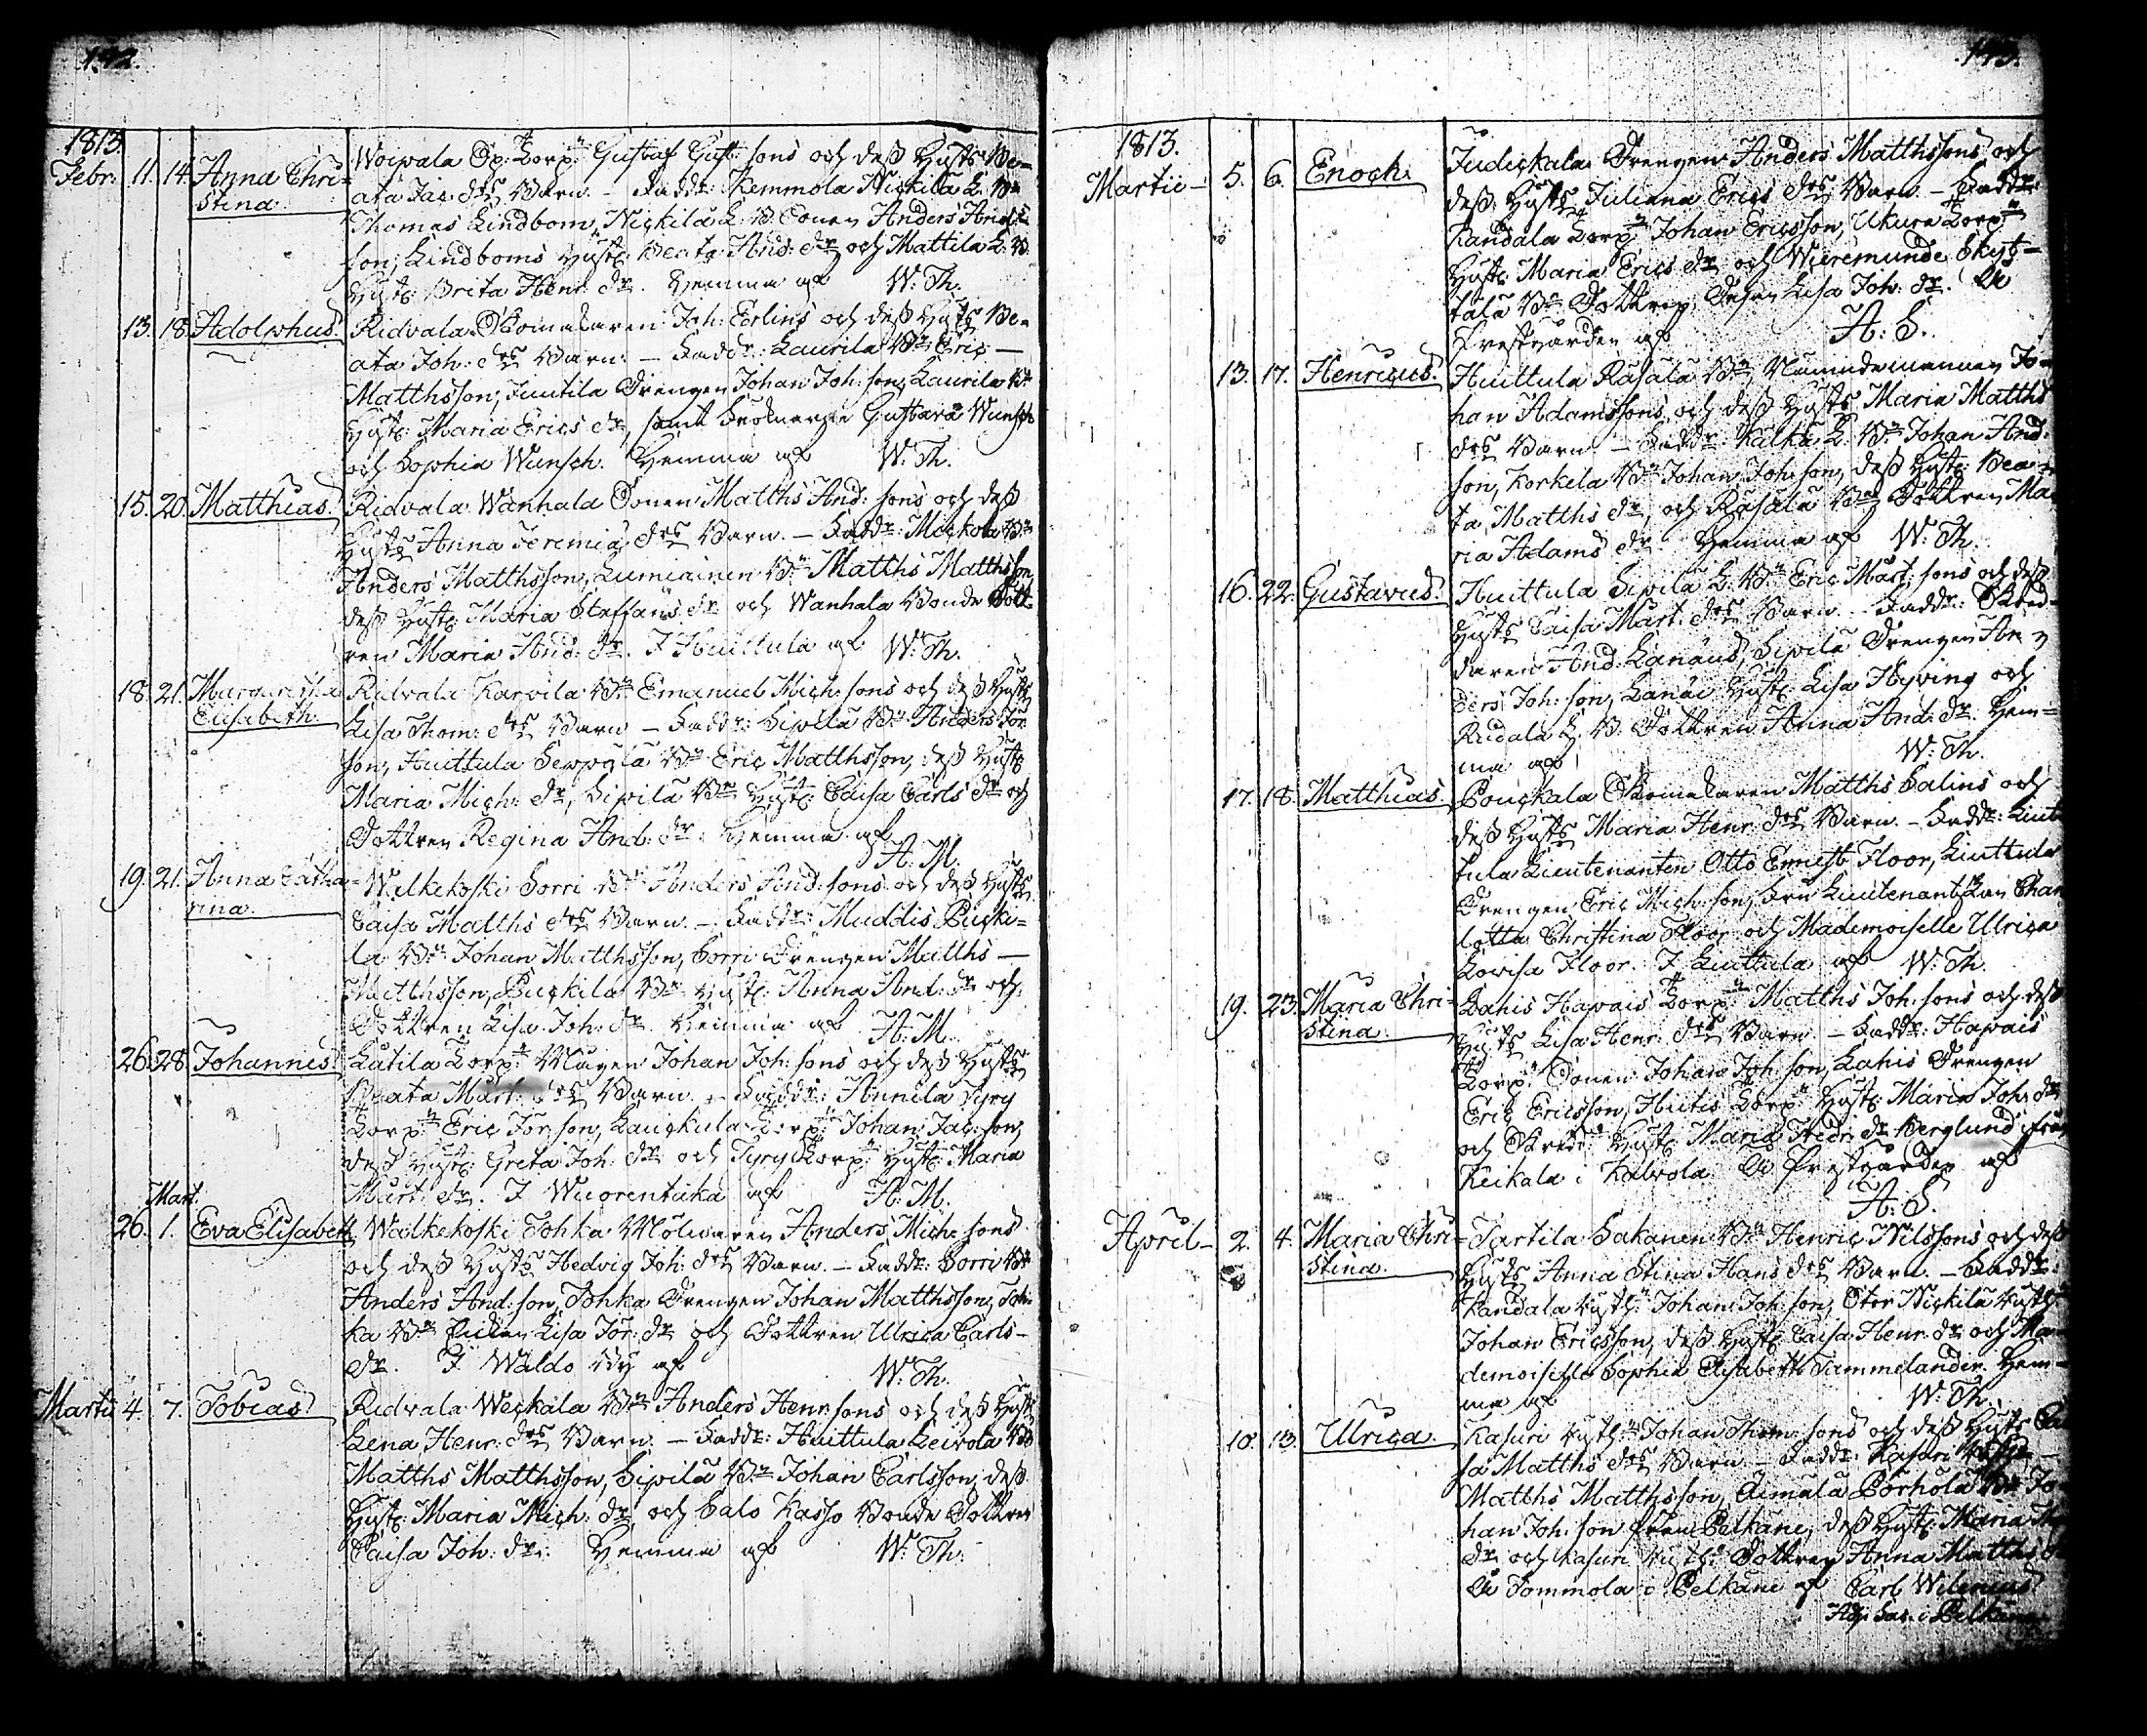 192.
1813.
Febr. 11. 14. Anna Christina. Woipala Sp: Torp:n Gustaf Gust: sons och deß Hust:s Be-
ata Jac: d:rs Barn. – Fadd:r: Kemmola Nickilä L. B:n
Thomas Lindbom, Nickilä L. B. Sonen Anders And:s
son, Lindboms Hust: Beata And: d:r och Mattila L. B.
Hust: Brita Henr: d:r. Hemma af W: Th.
13. 18. Adolphus. Ridvala Skomakaren Joh: Eerlins och deß Hust:s Be-
ata Joh: d:rs Barn. – Fadd:r: Laurila B:n Eric –
Matthsson, Juutila Drengen Johan Joh: son, Laurila B:n
Hust: Maria Erics d:r, samt Gustava Wunsch
och Sophia Wunsch. Hemma af W: Th.
15. 20. Matthias. Ridvala Wanhala Sonen Matths And: sons och deß
Hust:s Anna Jeremiæ d:rs Barn. – Fadd:r: Mickola B:n
Anders Matthsson, Lumiainen B:n Matths Matthsson,
deß Hust: Maria Staffans d:r och Wanhala Bonde Dott-
ren Maria And: d:r. I Huittula af W: Th.
18. 21. Margaretha Elisabeth. Ridvala Karvila B:n Emanuel Mich: sons och deß Hust:s
Lisa Thom: d:rs Barn – Fadd:r: Sipilä B:n Anders Jör:
son, Huittula Seppälä B:n Eric Matthsson, deß Hust:
Maria Mich: d:r, Sipilä B:n Hust: Caisa Carls d:r och
Dottren Regina And: d:r. Hemma af
A: M.
19. 21. Anna Catharina. Walkekoski Sorri B:n Anders And: sons och deß Hust:s
Caisa Matths d:rs Barn. – Fadd:r: Muddis Puski-
la B:n Johan Matthsson, Sorri Drengen Matths –
Matthsson, Puskila B:n Hust: Anna And: d:r och
Dottren Lisa Joh: d:r. Hemma af A: M.
26. 28. Johannes. Latila Torp: Mågen Johan Joh: sons och deß Hust:s
Beata Mårt: d:rs Barn. – Fadd:r: Annila Tyry
Torp:n Eric Jör: son, Lauskula Torp:n Johan Jac: son,
deß Hust: Greta Joh: d:r och Tyry Torp:n Hust: Maria
Mårt: d:r. I Wuorentaka af A: M.
Mart.
26. 1. Eva Elisabeth. Walkekoski Tohka Mölnaren Anders Mich: sons
och deß Hust:s Hedvig Joh: d:rs Barn. – Fadd:r: Sorri B:n
Anders And: son, Tohka Drengen Johan Matthsson, Toh-
ka B:n Pickan Lisa Jör: d:r och Dottren Ulrica Carls-
d:r. I Waldo By af W: Th.
Martii 4. 7. Tobias. Ridvala Weckala B:n Anders Henr: sons och deß Hust:s
Lena Henr: d:rs Barn. – Fadd:r: Huittula Leivola B:n
Matths Matthsson, Sipilä B:n Johan Carlsson, deß
Hust: Maria Mich: d:r, och Salo Kasso Bonde Dottren
Caisa Joh: d:r. Hemma af W: Th.
193.
1813.
Martii – 5. 6. Enoch. Judickala Drengen Anders Matthssons och
deß Hust:s Juliana Erics d:rs Barn. – Fadd:r:
Kandala Torp:n Johan Ericsson, Ukura Torp:n
Hust: Maria Erics d:r och Wieremunde Skyt-
tälä B:n Dottren, Lisa Joh: d:r. På
Prestgården af A: S.
13. 17. Henricus. Huittula Rasala B:n Nämndemannen Jo-
han Adamssons och deß Hust:s Maria Matths
d:rs Barn. – Fadd:r: Kalka L. B:n Johan And:
son, Korkela B:n Johan Joh: son, deß Hust: Bea-
ta Matths d:r, och Rasala B:n Dottren Ma-
ria Adams d:r. Hemma af W: Th.
16. 22. Gustavus. Huittula Sipila L. B:n Eric Mårt: sons och deß
Hust:s Caisa Mårt: d:rs Barn. – Fadd:r: Skräd-
daren And: Lanæus, Sipilä Drengen An-
ders Joh: son, Lanæi Hust: Lisa Hyving och
Rudala L. B. Dottren Anna And: d:r. Hem-
ma af W: Th.
17. 18. Matthias. Pouckala Skomakaren Matths Salins och
deß Hust:s Maria Henr: d:rs Barn. – Fadd:r: Liut-
tula Lieutenanten Otto Ernest Floor, Liuttula
Drengen Eric Mich: son, Fru Lieutenantskan Char-
lotta Christina Floor och Mademoiselle Ulrica
Lovisa Floor. I Liuttula af W: Th.
19. 23. Maria Christina. Lahis Hapais Torp:n Matths Joh: sons och deß
Hust:s Lisa Henr: d:rs Barn. – Fadd:r: Hapais
Torp:n Sonen Johan Joh: son, Lahis Drengen
Eric Ericsson, Hutis Torp:n Hust: Maria Joh: d:r
och Skrädd: Hust: Maria Fredr: d:r Berglund ifrån
Keikala i Kalvola. På Prestgården af
A: S.
April – 2. 4. Maria Christina. Tartila Sakanen B:n Henric Nilssons och deß
Hust:s Anna Stina Hans d:rs Barn. – Fadd:r:
Kandala Rusth:n Johan Joh: son, Stor Nickilä Rusth:n
Johan Ericsson, deß Hust: Caisa Henr: d:r och Ma-
demoiselle Sophia Elisabeth Tammelander. Hem-
ma af W: Th.
10. 13. Ulrica. Kasuri Rusth:n Johan Thom: sons och deß Hust:s Cai-
sa Matths d:rs Barn. – Fadd:r: Kasuri
Matths Matthsson, Äimälä Pörhölä B:n Jo-
han Joh: son från Pelkäne, deß Hust: Maria
d:r och Kasuri Rusth: Dottren Anna Matths d:r
På Tommola i Pelkäne af Carl Wilenius
Adj: Sac: i Pelkäne.